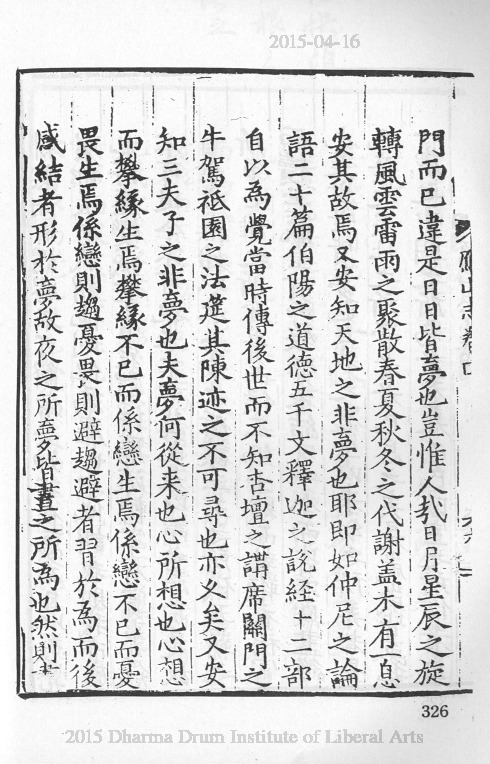 2015-04-16
門而已違是日日皆夢也豈惟人㢤日月星辰之旋
轉風雲雷雨之聚散春夏秋冬之代謝盖未有一息
安其故焉又安知天地之非夢也耶即如仲尼之論
語二十篇伯陽之道德五千文釋迦之說經十二部
自以為覺當時傳後世而不知杏壇之講席關門之
牛駕祗園之法筵其陳迹之不可尋也亦久矣又安
知三夫子之非夢也夫夢何從来也心所想也心想
而攀緣生焉攀緣不已而係戀生焉係戀不已而憂
畏生焉係戀則趨憂畏則避趨避者習於為而後
感結者形於夢故夜之所夢皆晝之所為也然則
山志卷四
326
2015 Dharma Drum Institute of Liberal Arts